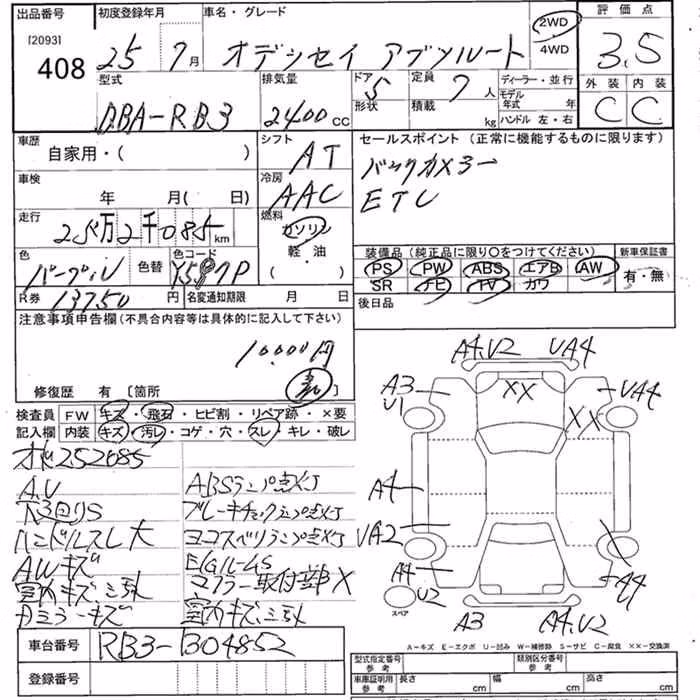 出品番号 初度登録年月 車名・グレード 2WD 評価点
[2093] 4WD
408 25 7月 オデッセイ アブソルート 3.5
型式 排気量 ドア 5 定員 7人 ディーラー・並行 外装 内装
DBA-RB3 2400 CC 形状 積載 kg モデル年式 年 C C
ハンドル 左・右
車歴 シフト セールスポイント (正常に機能するものに限ります)
自家用・( ) AT バックカメラー
車検 冷房 ETC
年 月( 日) AAC
走行 燃料
25万2千085km ガソリン
軽・油
色 色替 色コード ( ) 装備品(純正品に限り○をつけてください) 新車保証書
パープル PS PW ABS エアB AW 有・無
R券 13750円 名変通知期限 月 日 SR ナビ TV カワ
後日品
注意事項申告欄(不具合内容等は具体的に記入して下さい)
10,000円
修復歴 有 [箇所 無]
検査員 FW キズ・飛石・ヒビ割・リペア跡・×要
記入欄 内装 キズ・汚レ・コゲ・穴・スレ・キレ・破レ
252085
A.U ABSランプ点灯
下廻りS ブレーキチェックランプ点灯
ハンドルスレ大 ヨコスベリランプ点灯
AWキズ
マフラー取付部X
室内キズ
A4.U2 UA4
A3 XX UA4
U1 XX
A4
UA2 X
A4 A4
U2
スペア
A3 A4.U2
A-キズ E-エクボ U-凹み W-補修跡 S-サビ C-腐食 ××-交換済
車台番号 RB3-1304852
登録番号
型式指定番号 参考 類別区分番号 参考
車庫証明用 参考 長さ cm 幅 cm 高さ cm